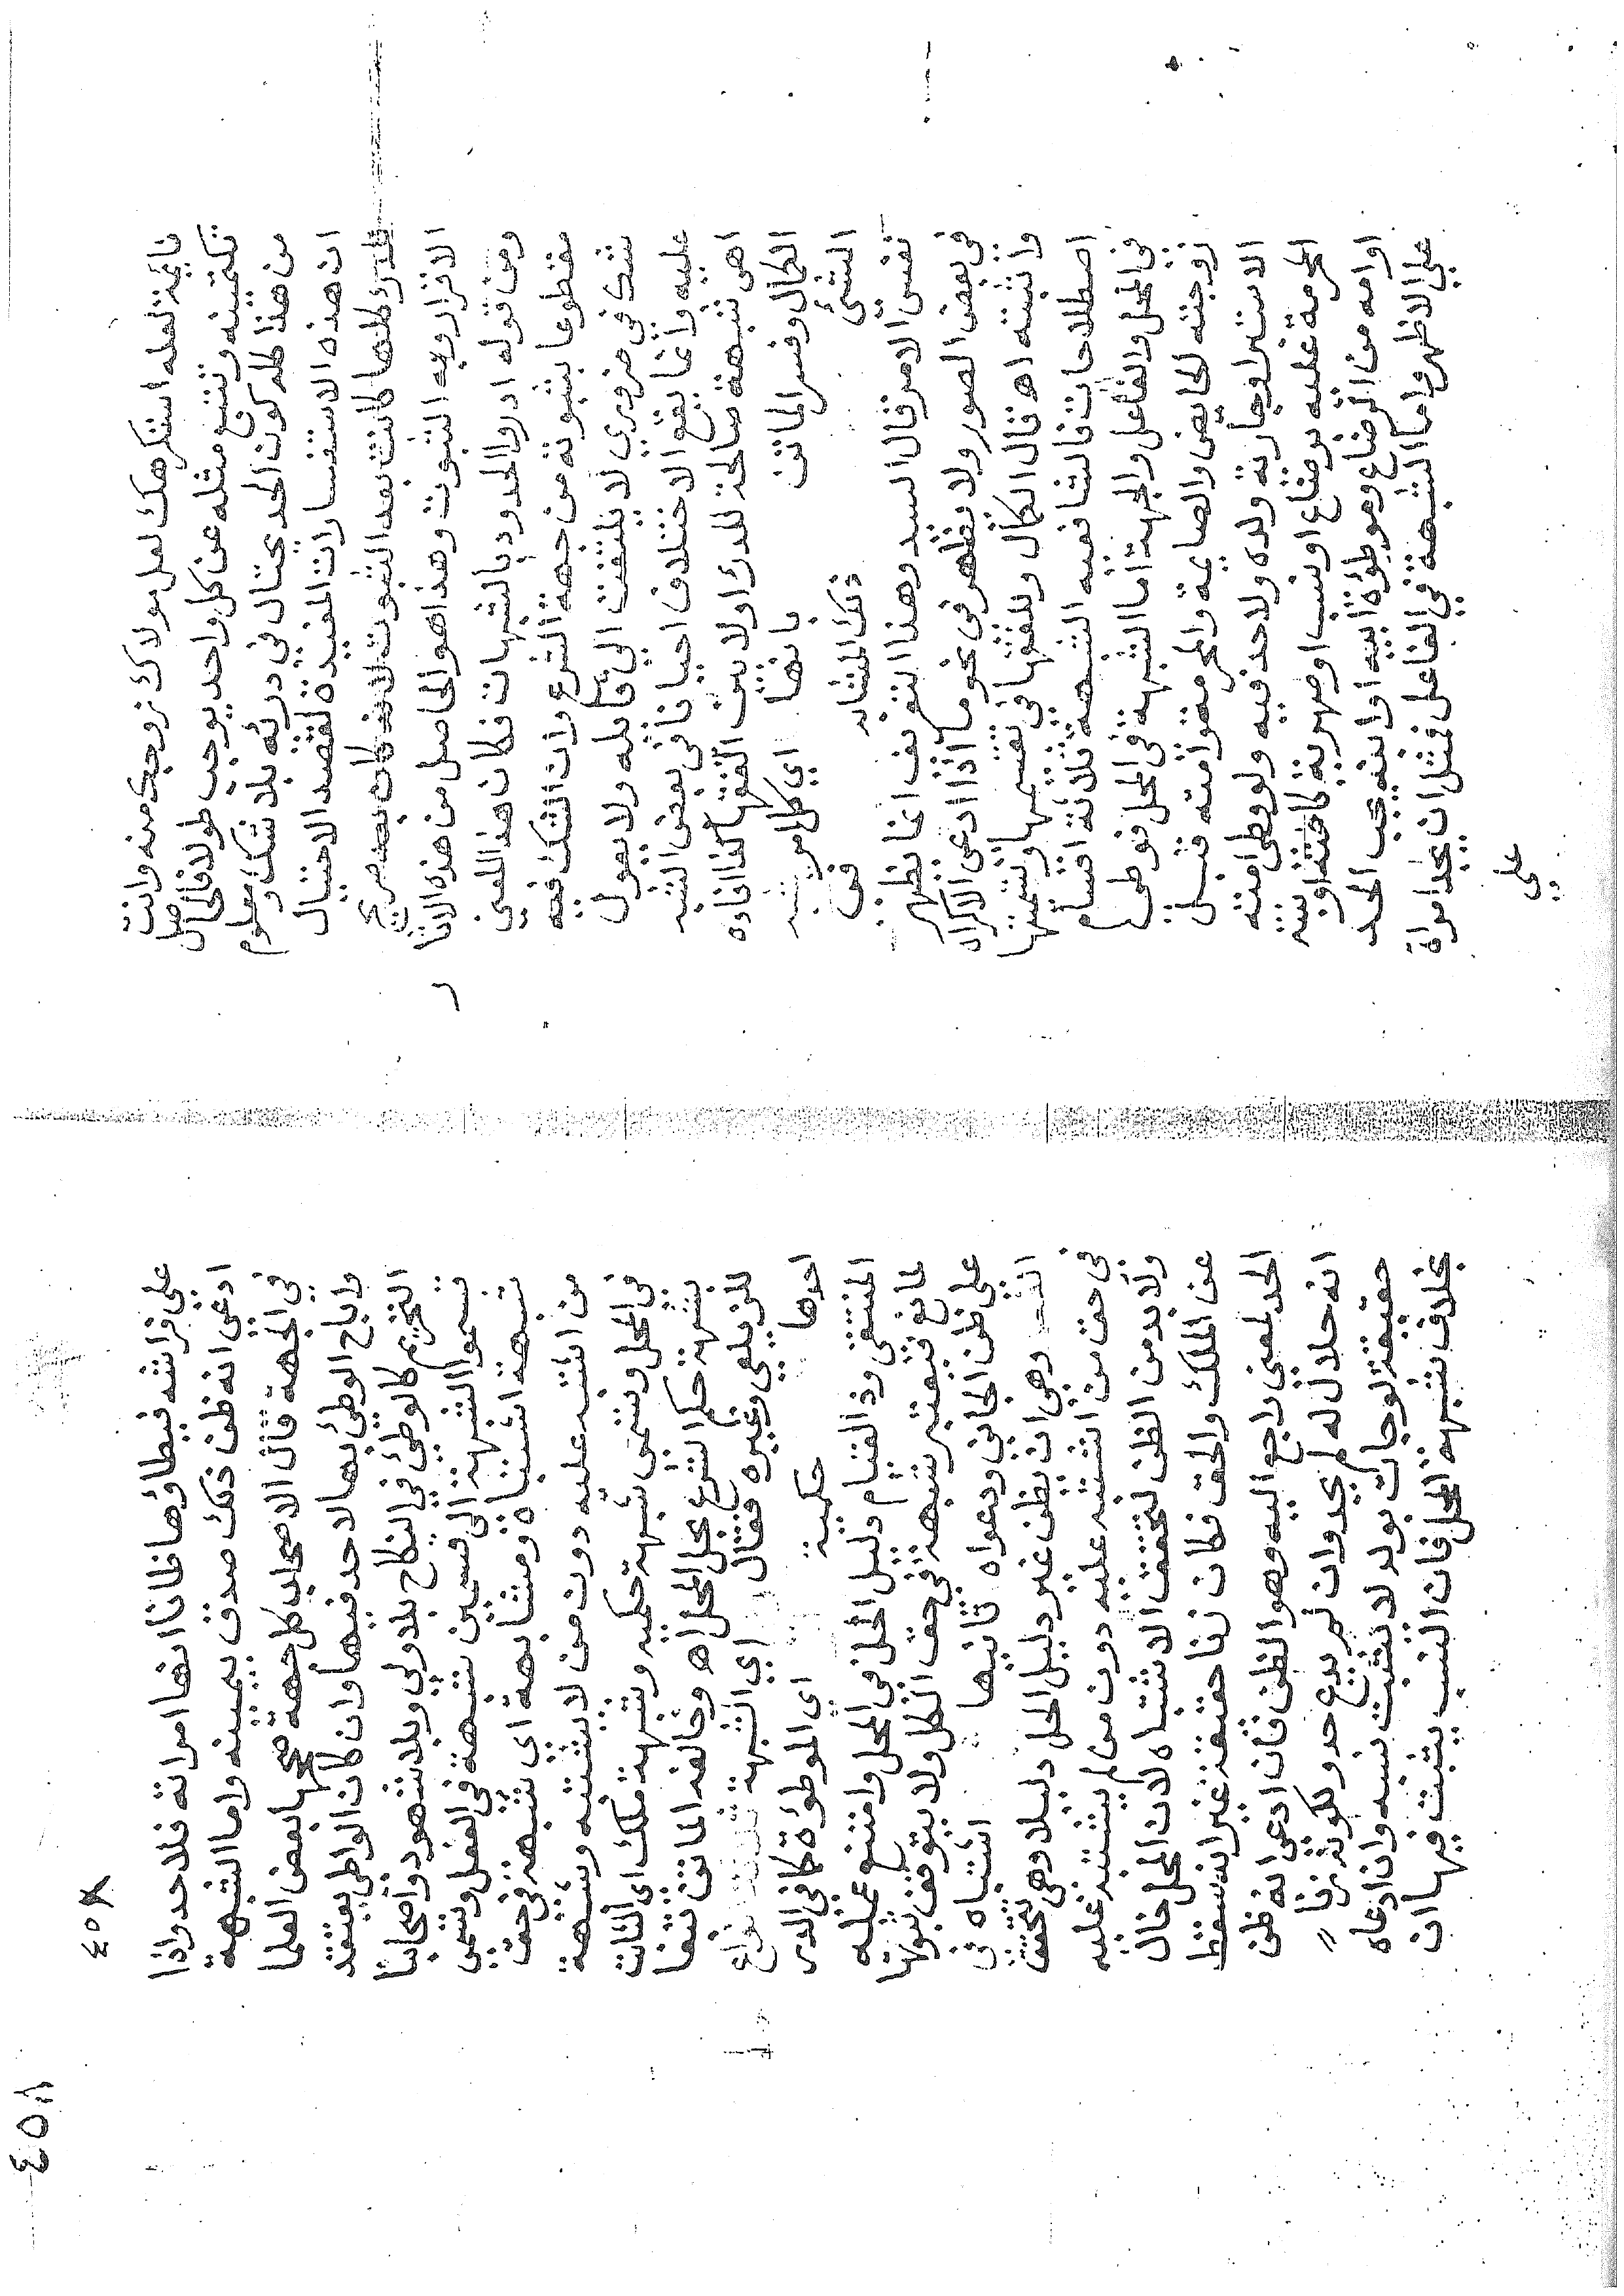 نائمة لعله استكرهك لعل مولاك زوجك منه وانت
تكتمينه وتتبع مثله عن كل واحد يوجب طولا فالحاصل
من هذا كله كون الحد يحتال في درئه بلا شك ومعلوم
ان هذه الاستفسارات المفيدة لقصد الاحتيال
للدرء كلها كانت بعد الثبوت لانه كان بعد صريح
الاقرار وبه الثبوت وهذا هو الحاصل من هذه الاثار
ومن قوله ادروا الحدود بالشبهات فكان هذا المعنى
مقطوعا بثبوته من جهة الشرع وان الشك فيه
شك في ضروري لا يلتفت الى قائله ولا يعول
عليه وانما يقع الاختلاف احيانا في بعض الشبه
اهي شبهة صالحة للدرء اولا بين الفقها كذا افاده
الكمال وفسر الماتن بانها اي كل امر يشبه
الشئ ذلك المشابه في
نفس الامر قال السيد وهذا التعريف انما يظهر
في بعض الصور ولا يظهر في نحو ما اذا ادعى الاكراه
واثبته اه قال الكمال وللفقها في تقسيمها وتسميتها
اصطلاحات فالشافعيه الشبهة ثلاثة اقسام
في المحل والفاعل والجهة اما الشبهة في المحل فوطى
زوجته الحايض والصايمة والمحرمة وامته قبل
الاستبرا وجارية ولده ولا حد فيه ولو وطى امته
المحرمة عليه برضاع او نسب او صهرية كاخته او بنته
او امه من الرضاع وموطؤة ابيه او ابنه يجب الحد
على الاظهر واما الشبهة في الفاعل فمثل ان يجد امراة
على
٤٥٨
٤٥٨
على فراشه فيطاؤها ظانا انها امراته فلا حد واذا
ادعى انه ظن ذلك صدق بيمينه واما الشبهة
في الجهة قال الاصحاب كل جهة صححها بعض العلما
واباح الوطئ بها لا حد فيها وان كان الواطي يعتقد
التحريم كالوطئ في النكاح بلا ولي وبلا شهود واصحابنا
قسموا الشبهة الى قسمين شبهة في الفعل وتسمى
شبهة اشتباه ومشابهة اي شبهة في حق
من اشتبه عليه دون من لا يشتبه وشبهة
في المحل وتسمى شبهة حكمية وشبهة ملك اي الثابت
شبهة حكم الشرع بحل المحل اه وخالفه الماتن تبعا
للزيلعي وغيره فقال اي الشبهة ثلاثة انواع
احدها حكمية اي الموطؤة كما في الدرر
المنتقى وذا لقيام دليل الحل في المحل وامتنع عمله
لمانع فتعتبر شبهة في حق الكل ولا يتوقف ثبوتها
على ظن الجاني ودعواه ثانيها اشتباه في
وهي ان يظن غير دليل الحل دليلا وهي تتحقق
في حق من اشتبه عليه دون من لم يشتبه عليه
ولا بد من الظن لتحقق الاشتباه لان المحل خال
عن الملك والحق فكان زنا حقيقة غير انه سقط
الحد لمعنى راجع اليه وهو الظن فان ادعى انه ظن
انه حلال له لم يحد وان لم يدع حد ولكونه زنا
حقيقة لو جات بولد لا يثبت نسبه وان ادعاه
بخلاف شبهة المحل فان النسب يثبت فيها ان